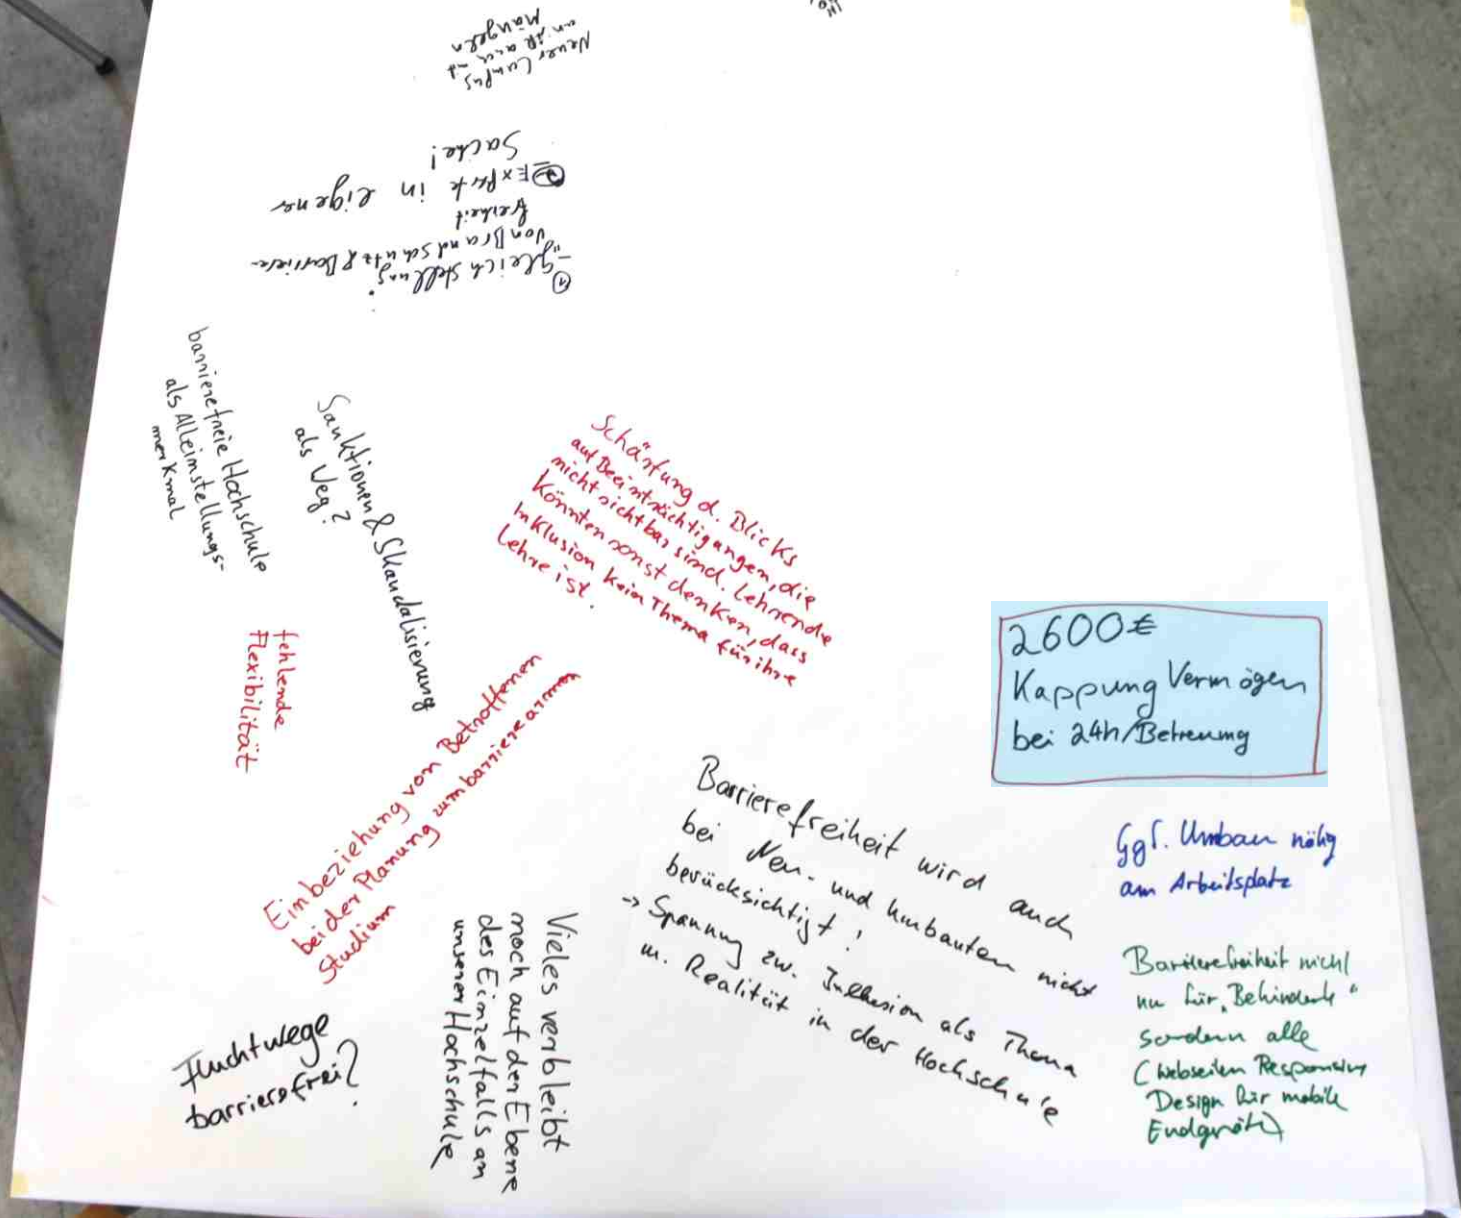 Neuer Campus
an sich auch mit
Mängeln
① "gleichstellung"
von Brandschutz & Barriere-
freiheit
② Experte in eigener
Sache!
barrierefreie Hochschule
als Alleinstellungs-
merkmal
Sanktionen & Skandalisierung
als Weg?
Schärfung d. Blicks
auf Beeinträchtigungen, die
nicht sichtbar sind. Lehrende
könnten sonst denken, dass
Inklusion kein Thema für ihre
Lehre ist.
fehlende
Flexibilität
Einbeziehung von Betroffenen
bei der Planung zum barrierearmen
Studium
2600€
Kappung Vermögen
bei 24h/Betreuung
Barrierefreiheit wird auch
bei Neu- und Umbauten nicht
berücksichtigt!
-> Spannung zw. Inklusion als Thema
u. Realität in der Hochschule
Ggf. Umbau nötig
am Arbeitsplatz
Barrierefreiheit nicht
nur für "Behinderte"
sondern alle
(Webseiten Responsive
Design für mobile
Endgeräte)
Vieles verbleibt
noch auf der Ebene
des Einzelfalls an
unserer Hochschule
Fluchtwege
barrierefrei?